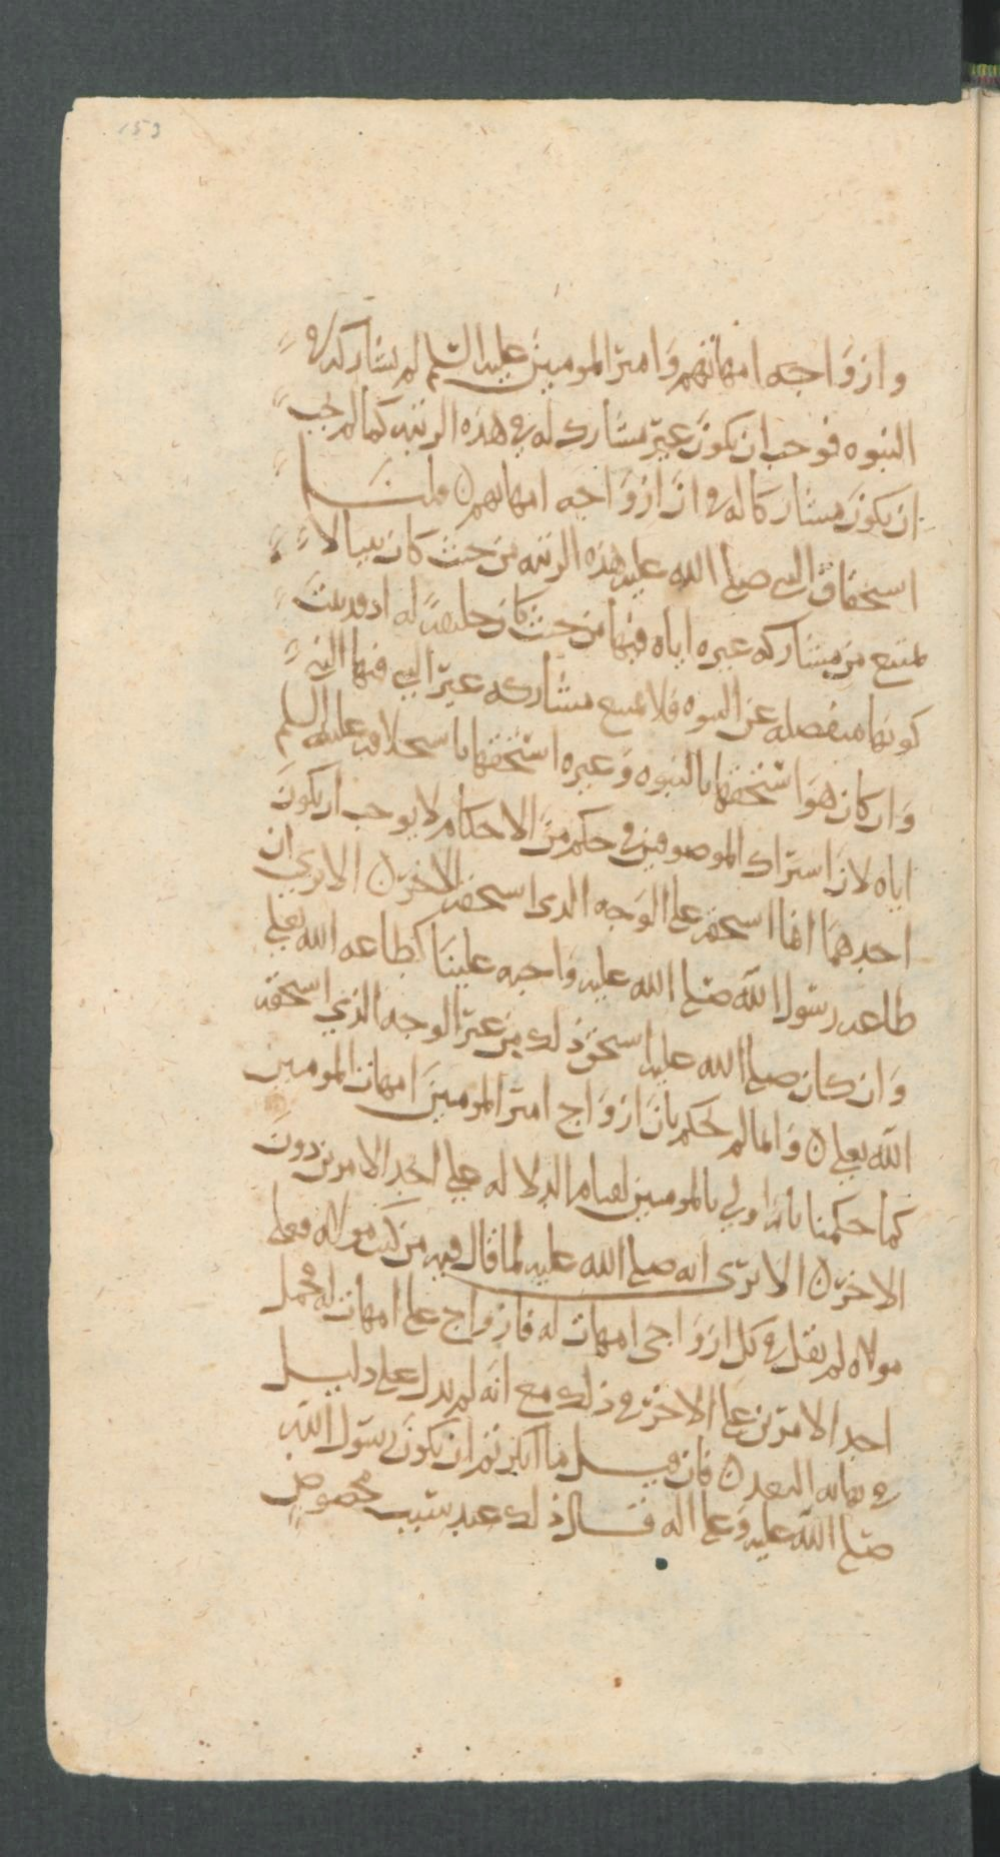 153
وازواجه امهاتهم وامير المومنين عليه السلم لم يشاركه في
النبوه فوجب ان يكون غير مشارك له في هذه الرتبه كما لم يجب
ان يكون مشاركا له في ان ازواجه امهاتهم ٥ قلنا
استحقاق النبي صلى الله عليه هذه الرتبه من حيث كان نبيا لا
يمنع من مشاركه غيره اياه فيها من حيث كان خليفه له اذ قد بينت
كونها منفصله عن النبوه فلا يمنع مشاركه غير النبي فيها النبي
وان كان هو استحقها بالنبوه وغيره استحقها باستخلافه عليه السلم
اياه لان اشتراك الموصوفين في حكم من الاحكام لا يوجب ان يكون
احدهما انما استحقه على الوجه الذي استحقه الاخر ٥ الا ترى ان
طاعه رسول الله صلى الله عليه واجبه علينا كطاعه الله تعلى
وان كان صلى الله عليه استحق ذلك من غير الوجه الذي استحقه
الله تعلى ٥ وانما لم نحكم بان ازواج امير المومنين امهات المومنين
كما حكمنا بانه اولى بالمومنين لقيام الدلاله على احد الامرين دون
الاخر ٥ الا ترى انه صلى الله عليه لما قال فيه من كنت مولاه فعلي
مولاه لم يقل في كل ازواجي امهات له فازواج علي امهات له فحمل
احد الامرين على الاخر في ذلك مع انه لم يدل عليه دليل
في نهايه البعد ٥ فان قيل ما انكرتم ان يكون رسول الله
صلى الله عليه وعلى اله قال ذلك عند سبب مخصوص